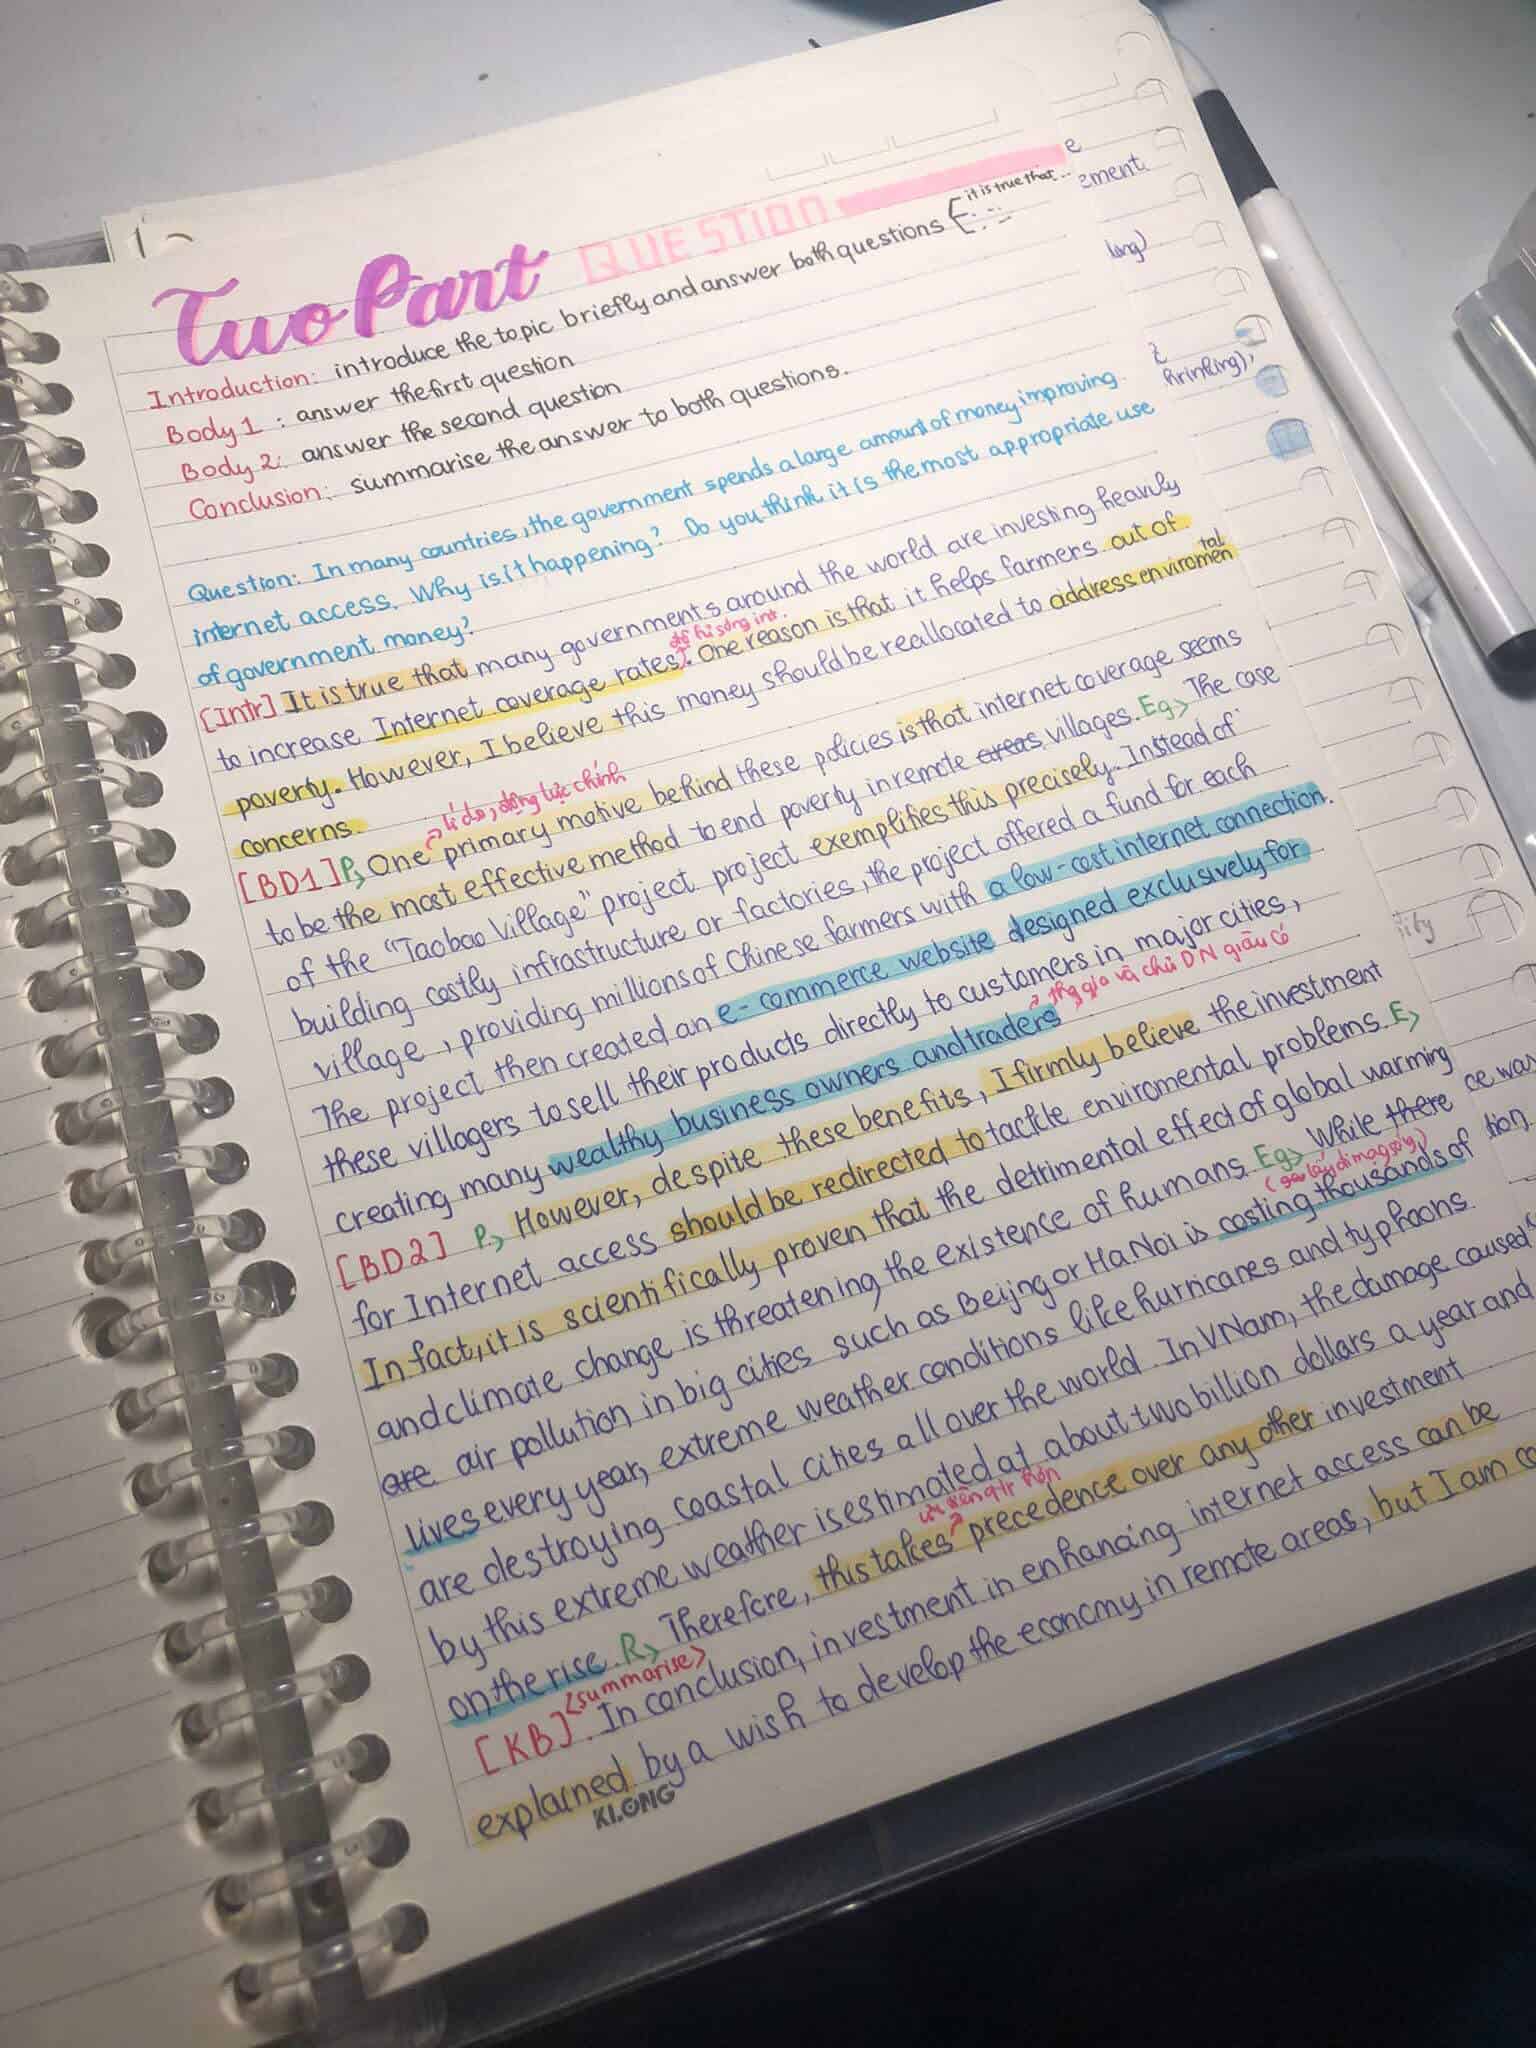 Two Part QUESTION
it is true that...
Introduction: introduce the topic briefly and answer both questions
Body 1 : answer the first question
Body 2: answer the second question
Conclusion: summarise the answer to both questions.
Question: In many countries, the government spends a large amount of money improving
internet access. Why is it happening? Do you think it is the most appropriate use
of government money?
[Intr] It is true that many governments around the world are investing heavily
to increase Internet coverage rates. One reason is that it helps farmers out of
poverty. However, I believe this money should be reallocated to address enviromental
concerns.
lí do, động lực chính
[BD1] P> One primary motive behind these policies is that internet coverage seems
to be the most effective method to end poverty in remote areas villages. Eg> The case
of the "Taobao Village" project project exemplifies this precisely. Instead of
building costly infrastructure or factories, the project offered a fund for each
village, providing millions of Chinese farmers with a low-cost internet connection.
The project then created an e-commerce website designed exclusively for
these villagers to sell their products directly to customers in major cities,
creating many wealthy business owners and traders
thg gia và chủ DN giàu có
[BD2] P> However, despite these benefits, I firmly believe the investment
for Internet access should be redirected to tackle enviromental problems. E>
In fact, it is scientifically proven that the detrimental effect of global warming
and climate change is threatening the existence of humans. Eg> While there
are air pollution in big cities such as Beijng or Ha Noi is costing thousands of
lives every year, extreme weather conditions like hurricanes and typhoons
are destroying coastal cities all over the world. In VNam, the damage caused
by this extreme weather is estimated at about two billion dollars a year and
on the rise. R> Therefore, this takes precedence over any other investment
<summarise>
[KB]. In conclusion, investment in enhancing internet access can be
explained by a wish to develop the economy in remote areas, but I am
KLONG